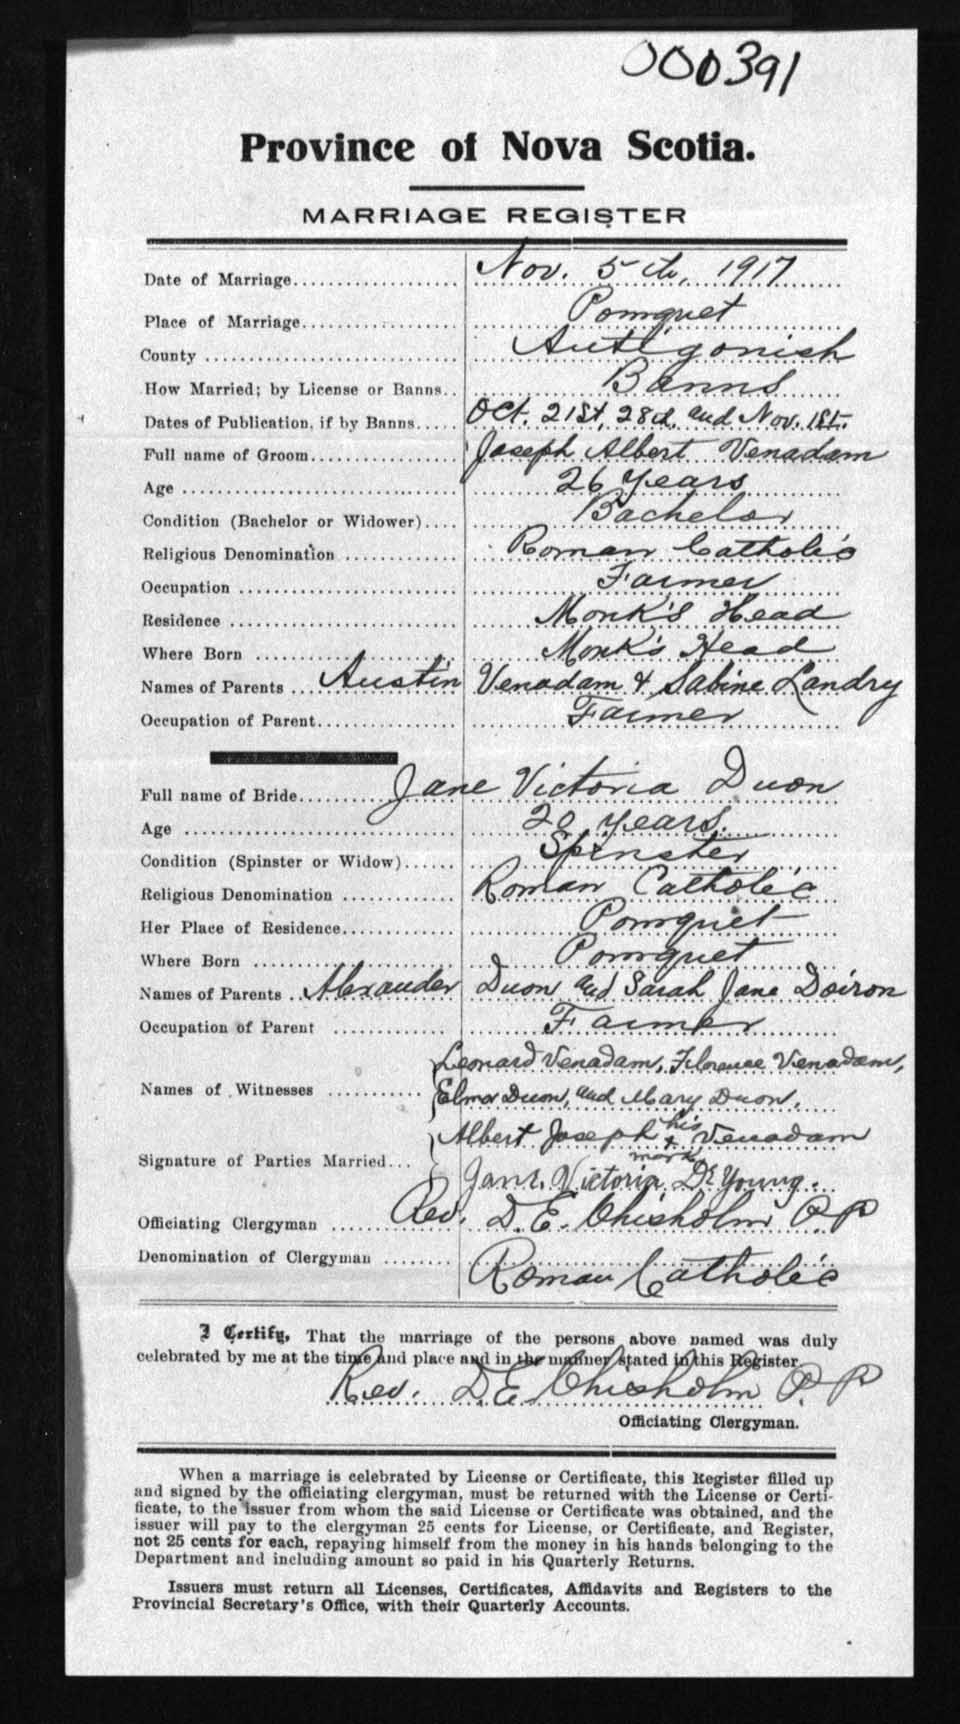 000391
Province of Nova Scotia.
MARRIAGE REGISTER
Date of Marriage.................... Nov. 5th, 1917
Place of Marriage................... Pomquet
County .............................. Antigonish
How Married; by License or Banns.. Banns
Dates of Publication, if by Banns..... Oct. 21st, 28th, and Nov. 1st.
Full name of Groom.................. Joseph Albert Venadam
Age ................................. 26 years
Condition (Bachelor or Widower).... Bachelor
Religious Denomination ............. Roman Catholic
Occupation .......................... Farmer
Residence ........................... Monk's Head
Where Born ........................ Monk's Head
Names of Parents ... Austin Venadam & Sabine Landry
Occupation of Parent................. Farmer
Full name of Bride......... Jane Victoria Duon
Age ................................. 20 years.
Condition (Spinster or Widow)...... Spinster
Religious Denomination ............. Roman Catholic
Her Place of Residence.............. Pomquet
Where Born ........................ Pomquet
Names of Parents .. Alexander Duon and Sarah Jane Doiron
Occupation of Parent .............. Farmer
Leonard Venadam, Florence Venadam,
Names of Witnesses ...........
Elmer Duon, and Mary Duon.
Albert Joseph his + mark Venadam
Signature of Parties Married...
Jane Victoria De Young.
Officiating Clergyman ........ Rev. D. E. Chisholm P.P
Denomination of Clergyman ........ Roman Catholic
I Certify, That the marriage of the persons above named was duly
celebrated by me at the time and place and in the manner stated in this Register.
Rev. D.E. Chisholm P.P
Officiating Clergyman.
When a marriage is celebrated by License or Certificate, this Register filled up
and signed by the officiating clergyman, must be returned with the License or Certi-
ficate, to the issuer from whom the said License or Certificate was obtained, and the
issuer will pay to the clergyman 25 cents for License, or Certificate, and Register,
not 25 cents for each, repaying himself from the money in his hands belonging to the
Department and including amount so paid in his Quarterly Returns.
Issuers must return all Licenses, Certificates, Affidavits and Registers to the
Provincial Secretary's Office, with their Quarterly Accounts.